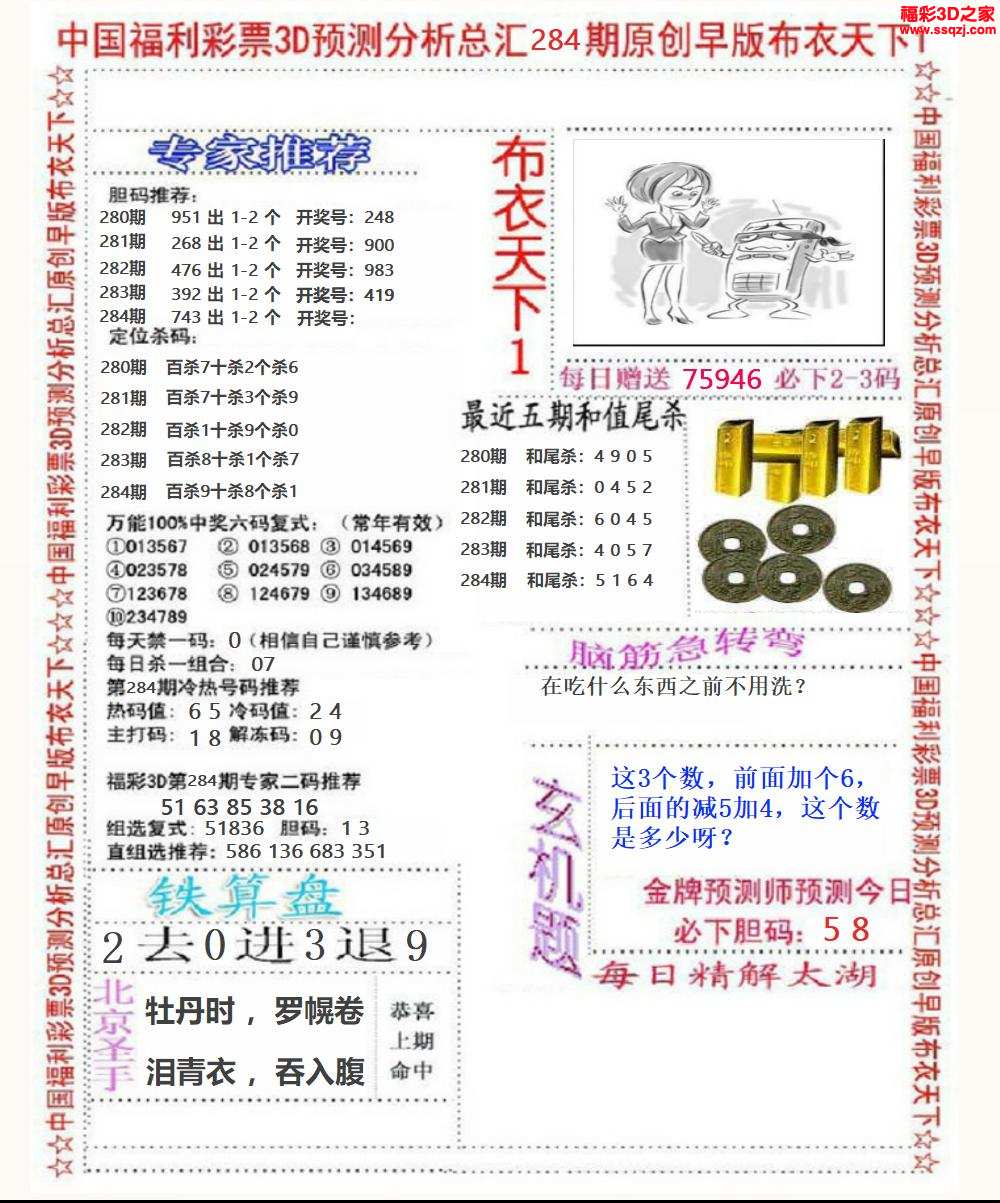 福彩3D之家
www.ssqzj.com
中国福利彩票3D预测分析总汇284期原创早版布衣天下1
☆☆中国福利彩票3D预测分析总汇原创早版布衣天下☆☆中国福利彩票3D预测分析总汇原创早版布衣天下☆☆
专家推荐
胆码推荐：
280期 951 出 1-2 个 开奖号：248
281期 268 出 1-2 个 开奖号：900
282期 476 出 1-2 个 开奖号：983
283期 392 出 1-2 个 开奖号：419
284期 743 出 1-2 个 开奖号：
定位杀码：
280期 百杀7十杀2个杀6
281期 百杀7十杀3个杀9
282期 百杀1十杀9个杀0
283期 百杀8十杀1个杀7
284期 百杀9十杀8个杀1
万能100%中奖六码复式：（常年有效）
①013567 ② 013568 ③ 014569
④023578 ⑤ 024579 ⑥ 034589
⑦123678 ⑧ 124679 ⑨ 134689
⑩234789
每天禁一码：0（相信自己谨慎参考）
每日杀一组合：07
第284期冷热号码推荐
热码值：6 5 冷码值：2 4
主打码：1 8 解冻码：0 9
福彩3D第284期专家二码推荐
51 63 85 38 16
组选复式：51836 胆码：1 3
直组选推荐：586 136 683 351
铁算盘
2去0进3退9
北京圣手
牡丹时，罗幌卷
泪青衣，吞入腹
恭喜
上期
命中
布衣天下1
每日赠送 75946 必下2-3码
最近五期和值尾杀
280期 和尾杀：4 9 0 5
281期 和尾杀：0 4 5 2
282期 和尾杀：6 0 4 5
283期 和尾杀：4 0 5 7
284期 和尾杀：5 1 6 4
脑筋急转弯
在吃什么东西之前不用洗？
玄机题
这3个数，前面加个6，
后面的减5加4，这个数
是多少呀？
金牌预测师预测今日
必下胆码：5 8
每日精解太湖
☆☆中国福利彩票3D预测分析总汇原创早版布衣天下☆☆中国福利彩票3D预测分析总汇原创早版布衣天下☆☆